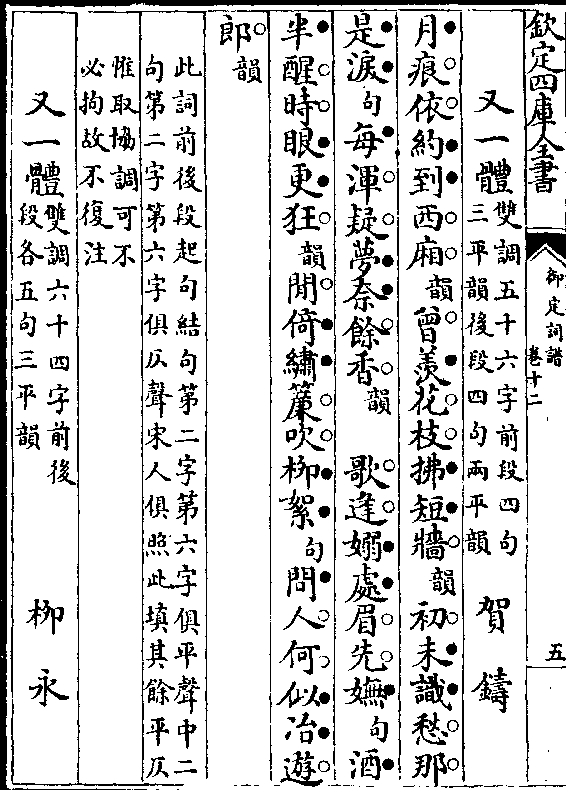 欽定四庫全書
御定詞譜
卷十二
五
又一體 雙調五十六字前段四句
三平韻後段四句兩平韻
賀鑄
月痕依約到西廂韻曾羨花枝拂短牆韻初未識愁那
是淚句每渾疑夢奈餘香韻 歌逢嫋處眉先嫵句酒
半醒時眼更狂韻閒倚繡簾吹柳絮句問人何似冶遊
郎韻
此詞前後段起句結句第二字第六字俱平聲中二
句第二字第六字俱仄聲宋人俱照此填其餘平仄
惟取協調可不
必拘故不復注
又一體 雙調六十四字前後
段各五句三平韻
柳永